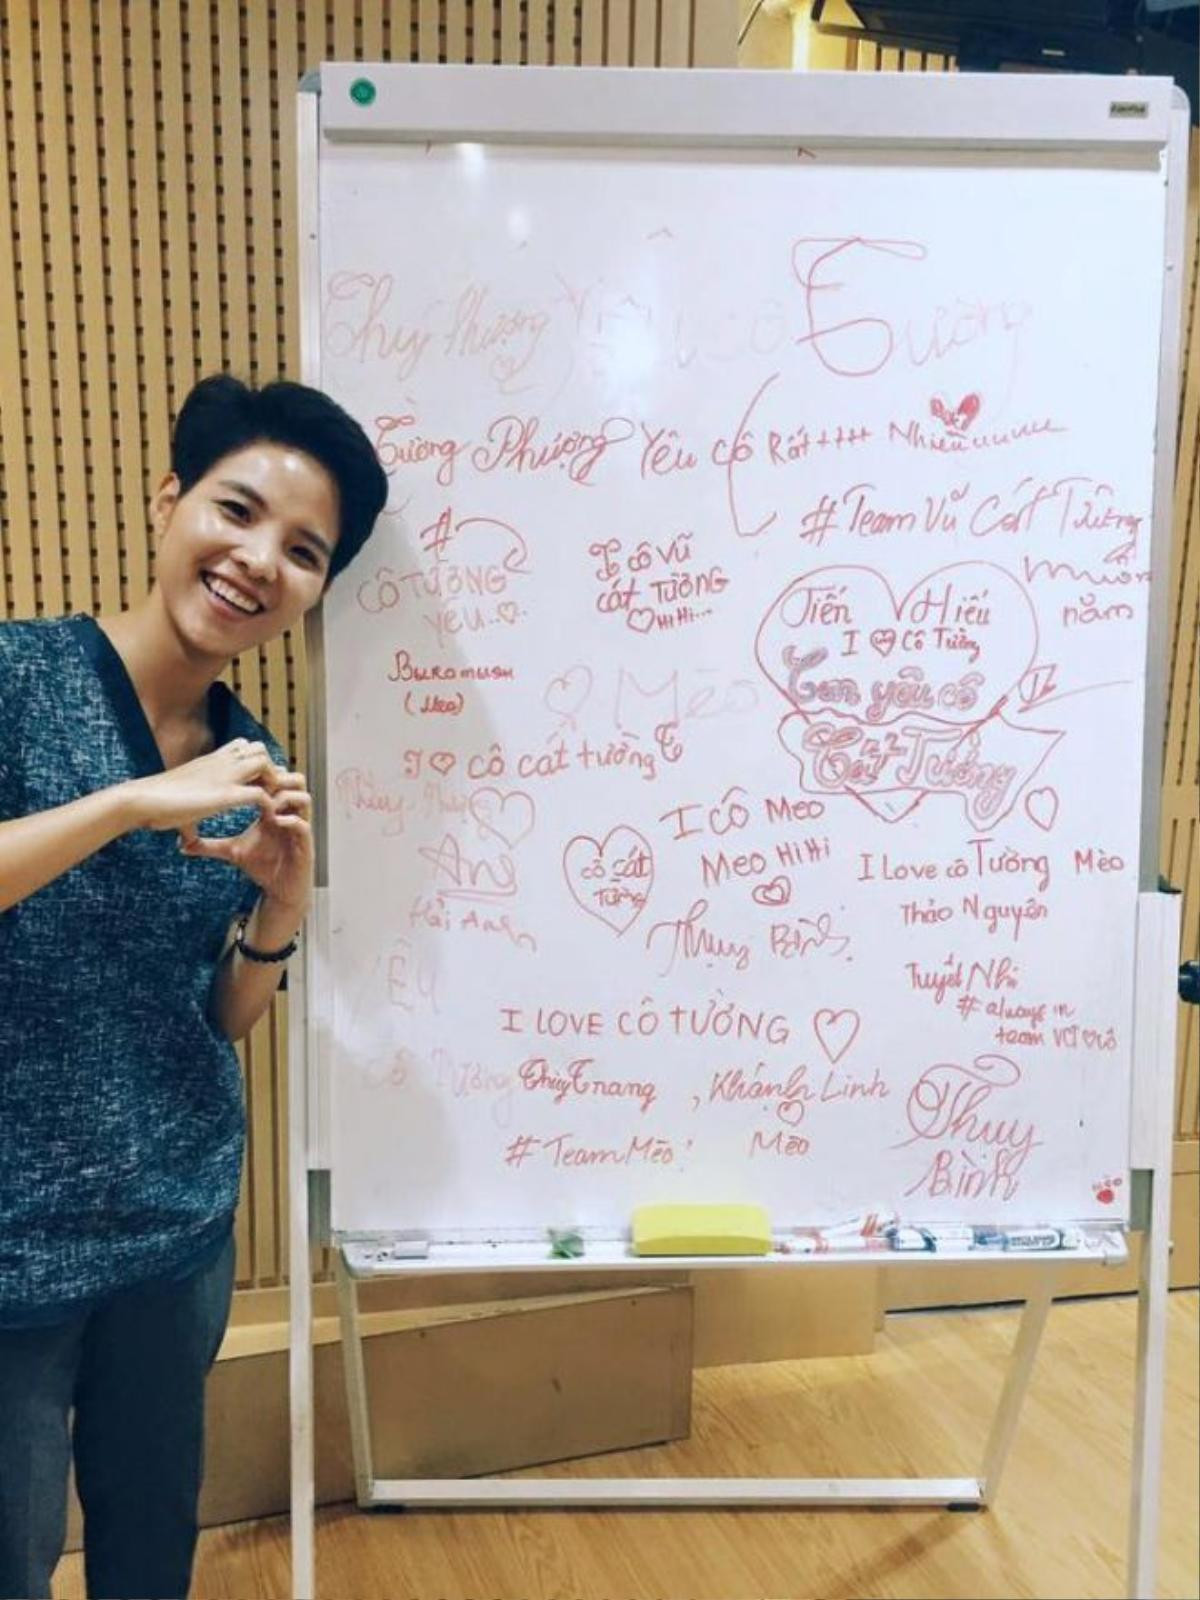 Thụy Phượng Yêu cô Tường
Tường Phượng Yêu cô Rất ++++ Nhiềuuuuu
#Team Vũ Cát Tường
muôn
năm
#
CÔ TƯỜNG
yêu..
I cô Vũ
Cát TƯỜNG
Hi Hi...
Tiến Hiếu
I Cô Tường
Em yêu cô
Cát Tường
Buromush
(Meo)
Mèo
I cô cát tường
An
Hải Anh
cô cát
Tường
I CÔ Meo
Meo Hi Hi
Thụy Bình
I Love cô Tường Mèo
Thảo Nguyên
Tuyết Nhi
# always in
team VCT
YÊU
I LOVE CÔ TƯỜNG
Cô Tường
Thùy Trang, Khánh Linh
#Team Mèo!
Mèo
Thụy
Bình